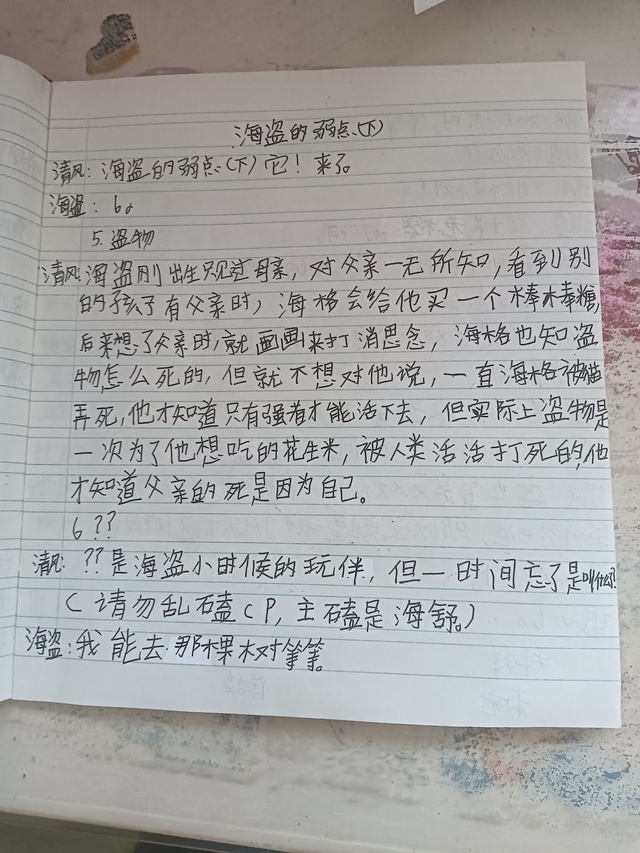 海盗的弱点(下)
清风:海盗的弱点(下)它!来了
海盗:6。
5.盗物
清风:海盗刚出生只见过母亲,对父亲一无所知,看到别
的孩子有父亲时,海格会给他买一个棒棒糖,
后来想了父亲时,就画画来打消思念,海格也知盗
物怎么死的,但就不想对他说,一直海格被猫
再死,他才知道只有强者才能活下去,但实际上盗物是
一次为了他想吃的花生米,被人类活活打死的,他
才知道父亲的死是因为自己。
6??
清风:??是海盗小时候的玩伴,但一时间忘了是叫什么?
(请勿乱磕CP,主磕是海舒。)
海盗:我能去那棵树等等。